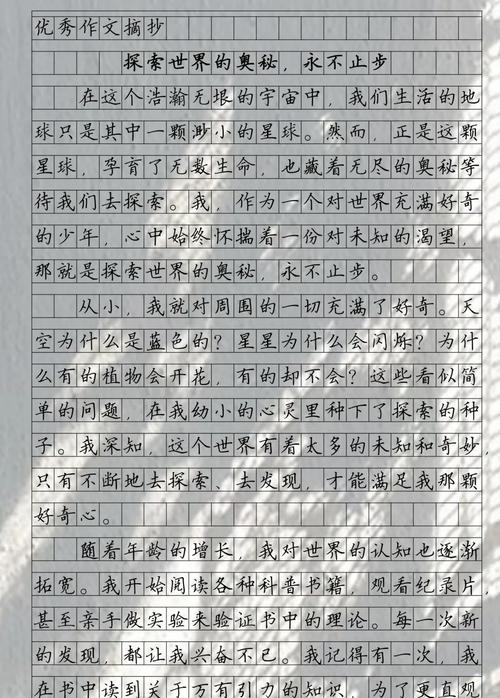 优秀作文摘抄
探索世界的奥秘，永不止步
在这个浩瀚无垠的宇宙中，我们生活的地
球只是其中一颗渺小的星球。然而，正是这颗
星球，孕育了无数生命，也藏着无尽的奥秘等
待我们去探索。我，作为一个对世界充满好奇
的少年，心中始终怀揣着一份对未知的渴望，
那就是探索世界的奥秘，永不止步。
从小，我就对周围的一切充满了好奇。天
空为什么是蓝色的？星星为什么会闪烁？为什
么有的植物会开花，有的却不会？这些看似简
单的问题，在我幼小的心灵里种下了探索的种
子。我深知，这个世界有着太多的未知和奇妙，
只有不断地去探索、去发现，才能满足我那颗
好奇心。
随着年龄的增长，我对世界的认知也逐渐
拓宽。我开始阅读各种科普书籍，观看纪录片，
甚至亲手做实验来验证书中的理论。每一次新
的发现，都让我兴奋不已。我记得有一次，我
在书中读到关于万有引力的知识，为了更直观